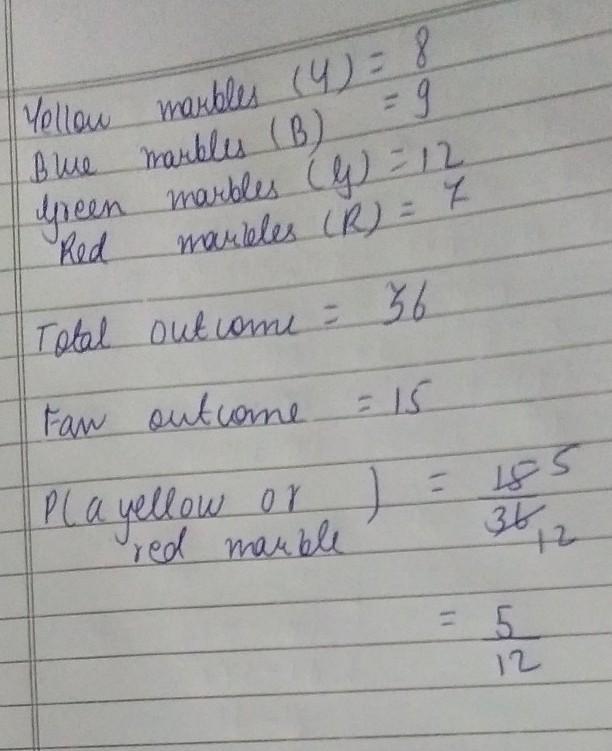 Yellow marbles (Y) = 8
Blue marbles (B) = 9
Green marbles (G) = 12
Red marbles (R) = 7
Total outcome = 36
Fav outcome = 15
P(a yellow or red marble) = 15/36 5/12
= 5/12